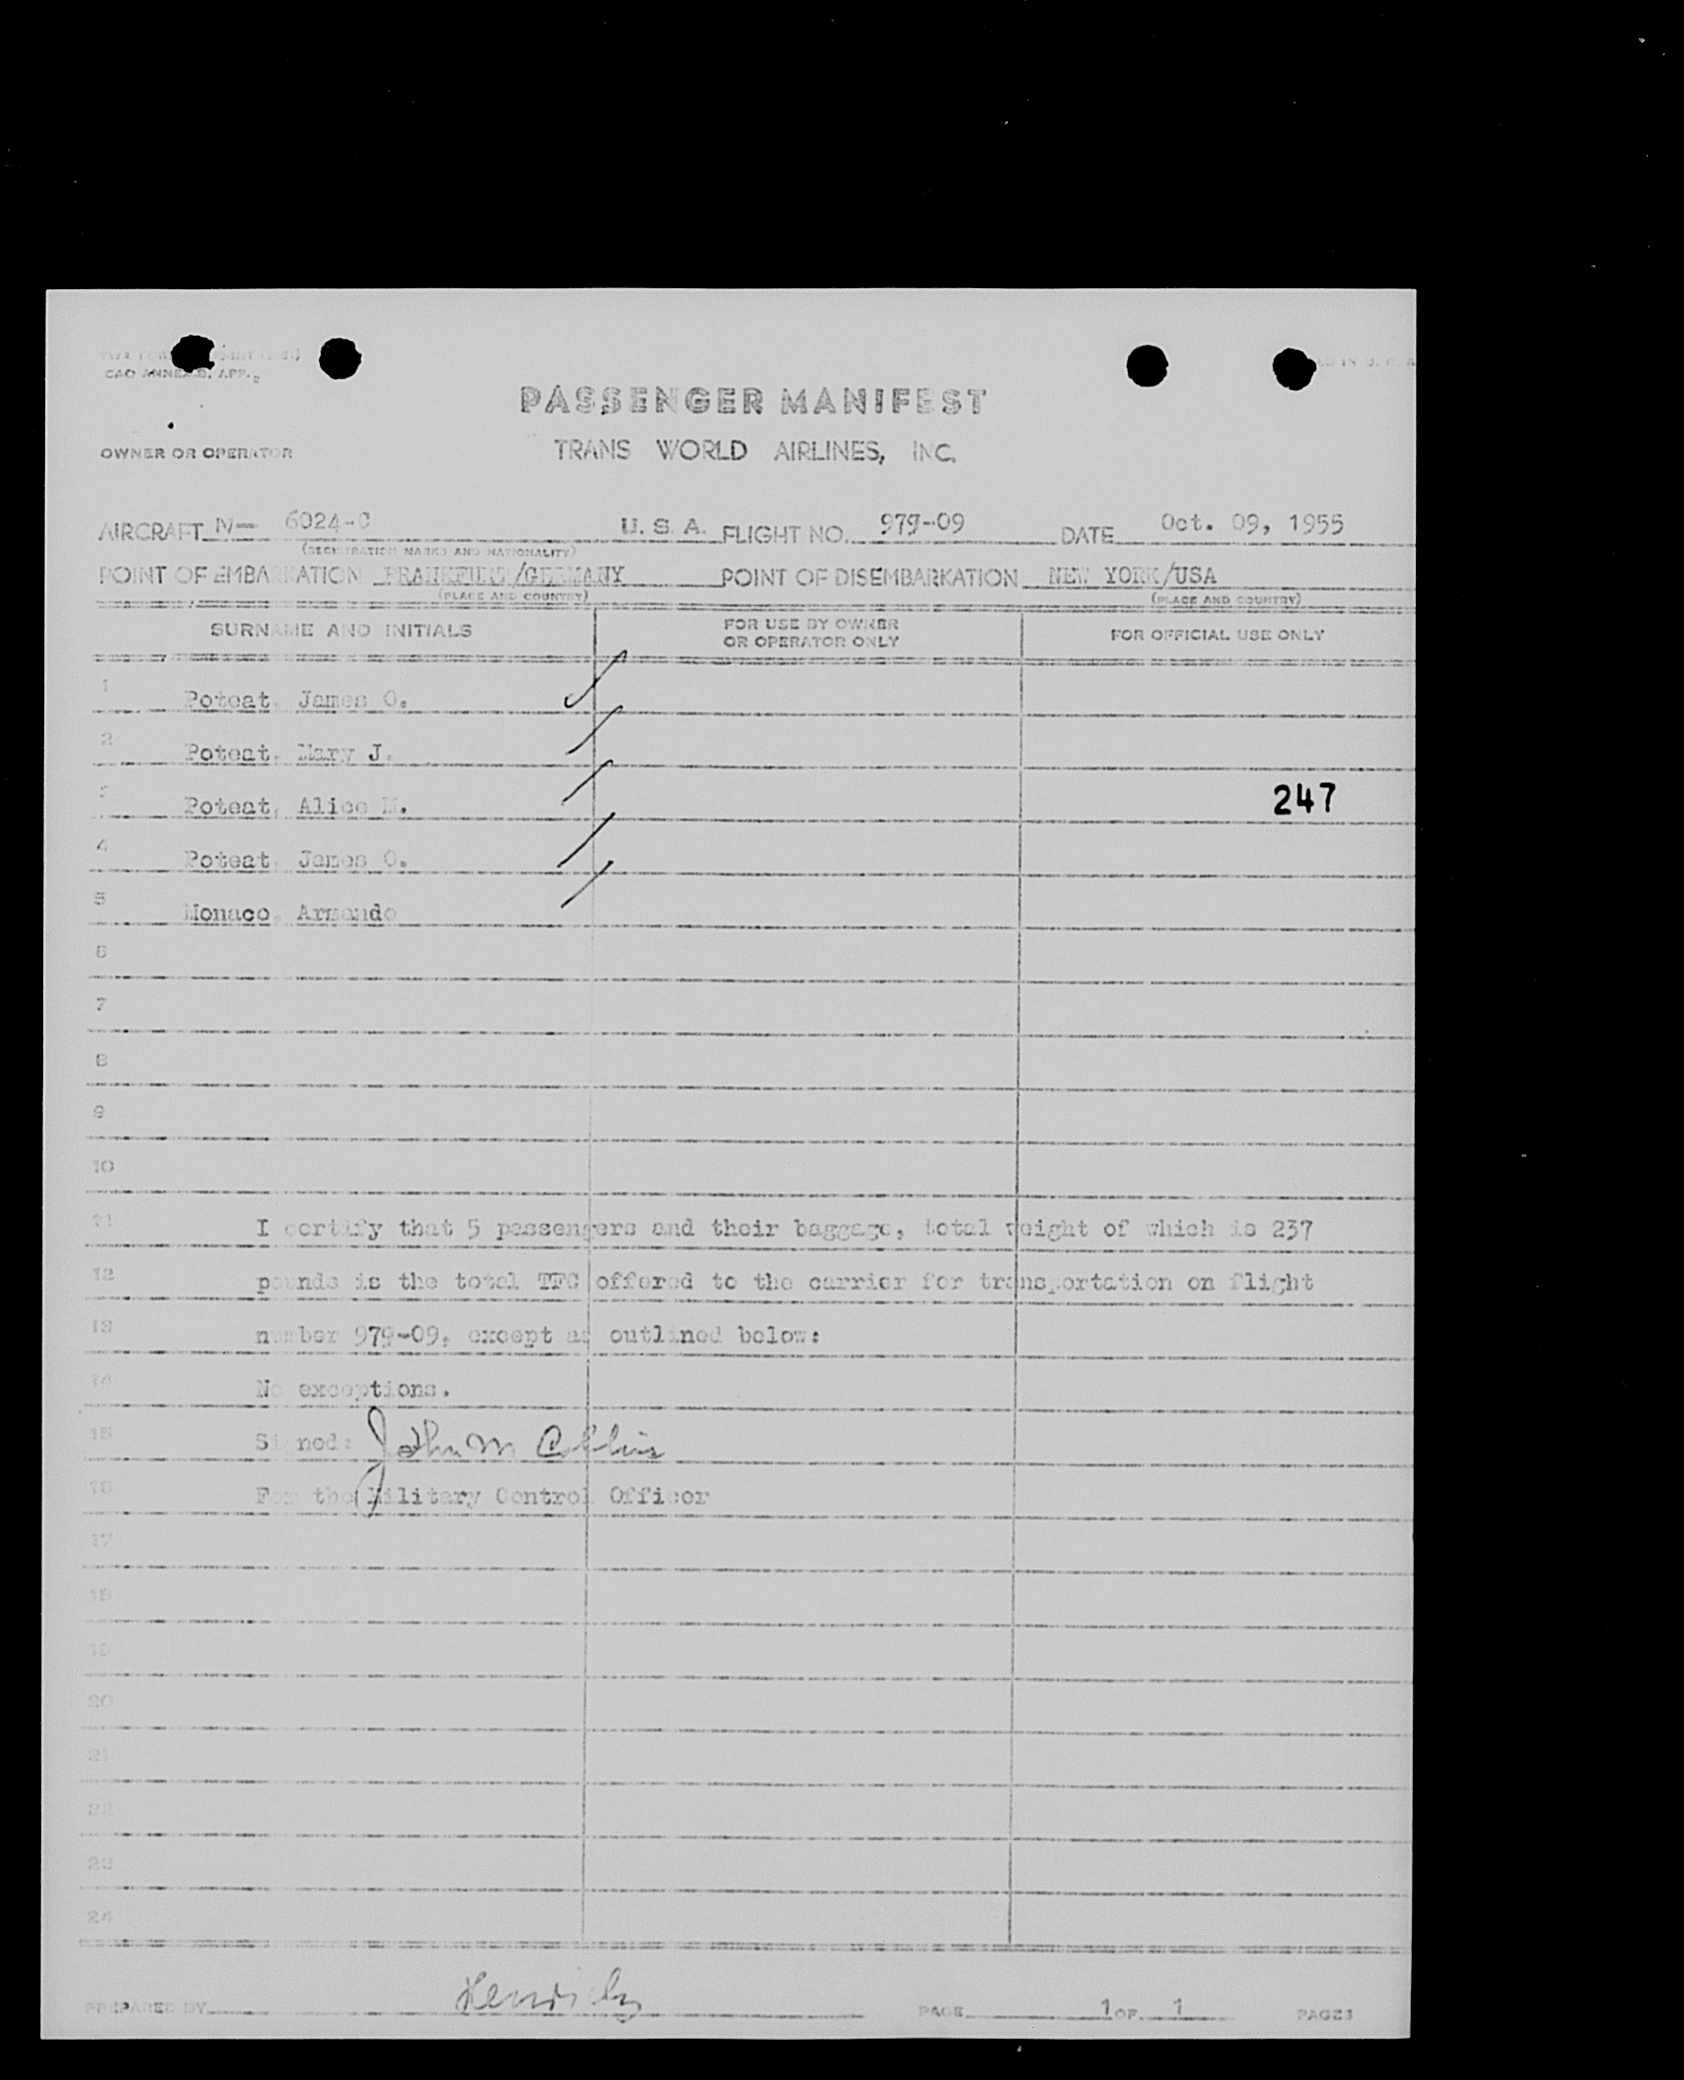 CAO ANNEX 9, APP. 2
PASSENGER MANIFEST
OWNER OR OPERATOR TRANS WORLD AIRLINES, INC.
AIRCRAFT N- 6024-C U. S. A. FLIGHT NO. 979-09 DATE Oct. 09, 1955
(REGISTRATION MARKS AND NATIONALITY)
POINT OF EMBARKATION FRANKFURT/GERMANY POINT OF DISEMBARKATION NEW YORK/USA
(PLACE AND COUNTRY) (PLACE AND COUNTRY)
SURNAME AND INITIALS FOR USE BY OWNER OR OPERATOR ONLY FOR OFFICIAL USE ONLY
1 Poteat, James O.
2 Poteat, Mary J.
3 Poteat, Alice M. 247
4 Poteat, James O.
5 Monaco, Armando
6
7
8
9
10
11 I certify that 5 passengers and their baggage, total weight of which is 237
12 pounds is the total TFC offered to the carrier for transportation on flight
13 number 979-09, except as outlined below:
14 No exceptions.
15 Signed: John M Collins
16 For the Military Control Officer
17
18
19
20
21
22
23
24
PREPARED BY PAGE 1 OF 1 PAGES